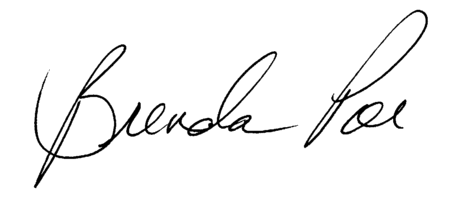 Brenda Poe